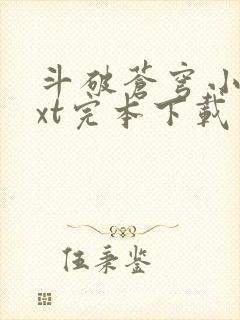 斗破苍穹 小
xt完本下载
伍秉鉴